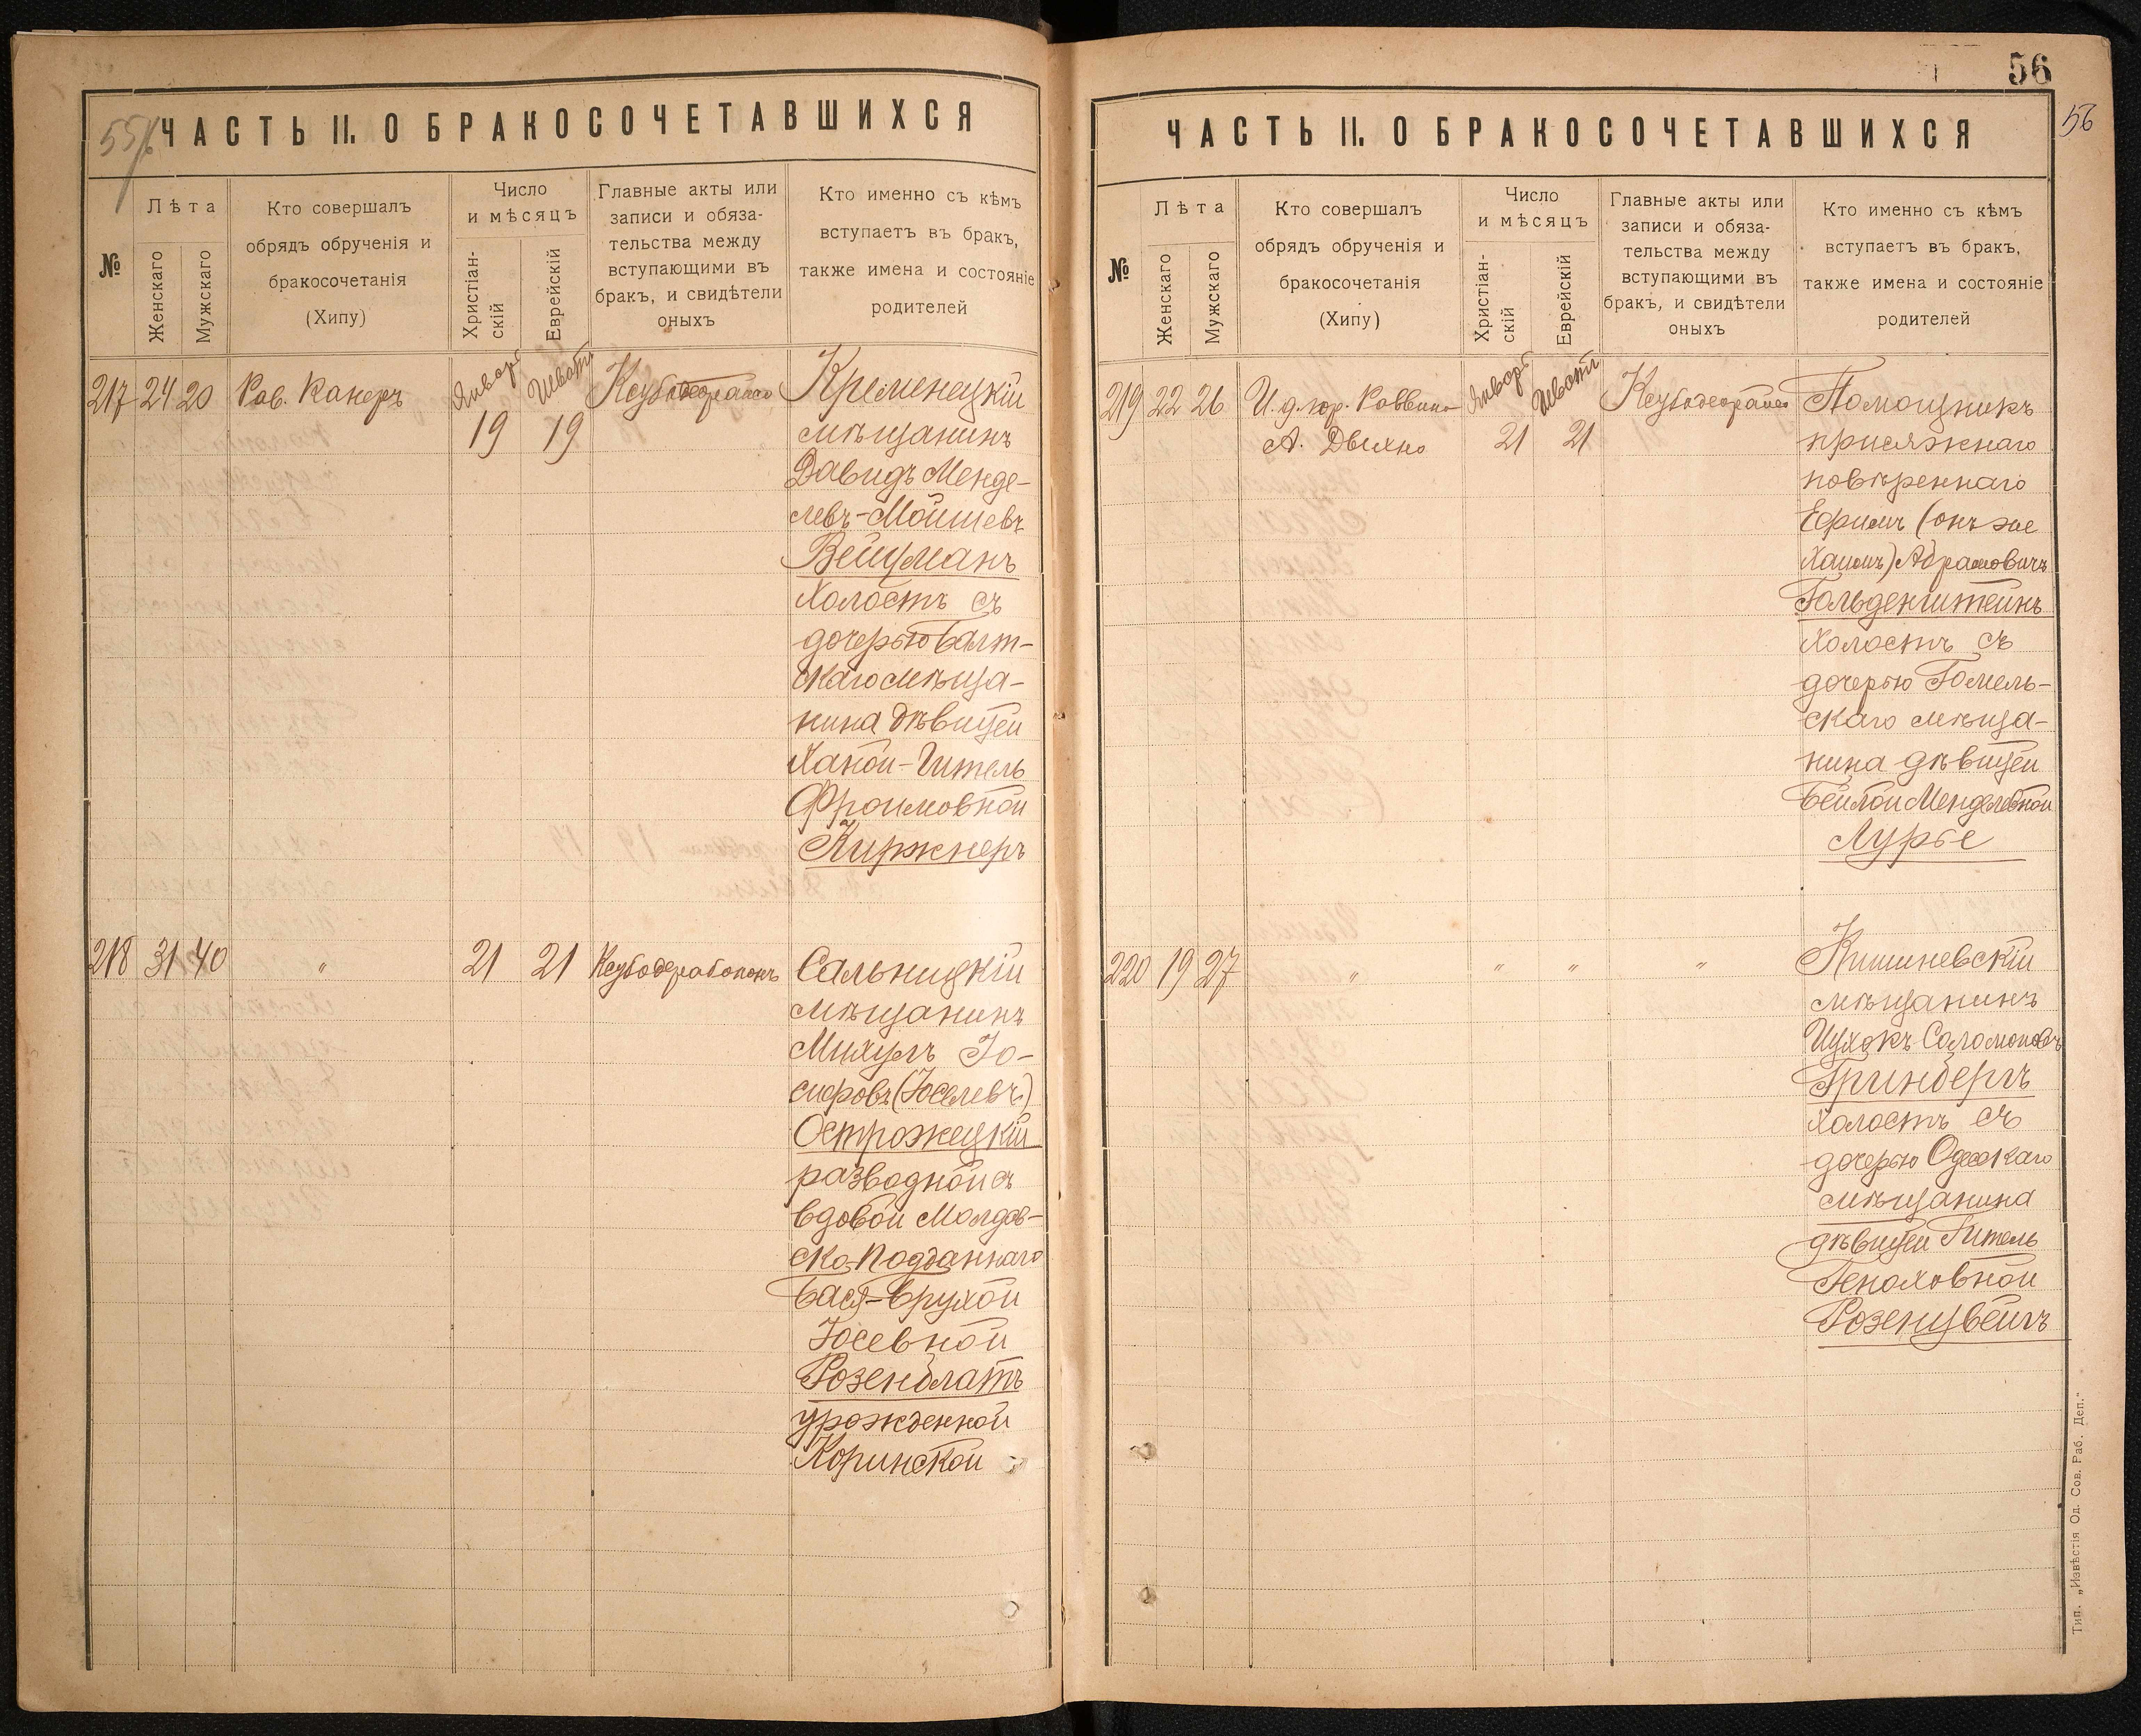 55
ЧАСТЬ II. О БРАКОСОЧЕТАВШИХСЯ
№
Лѣта
Женскаго
Мужскаго
Кто совершалъ
обрядъ обрученія и
бракосочетанія
(Хипу)
Число
и мѣсяцъ
Христіан-
скій
Еврейскій
Главные акты или
записи и обяза-
тельства между
вступающими въ
бракъ, и свидѣтели
оныхъ
Кто именно съ кѣмъ
вступаетъ въ бракъ,
также имена и состояніе
родителей
217 24 20 Рав. Канеръ Январь Шватъ Кремінецкій
19 19 мѣщанинъ
Давидъ Менде-
левъ-Мойшевъ
Вейцманъ
холостъ съ
дочерью Балт-
скаго мѣща-
нина дѣвицей
Ханой-Гитель
Фроимовной
Киржнеръ
218 31 40 " 21 21 Сальницкій
мѣщанинъ
Михуль Іо-
сифовъ (Іоселевъ)
Острожецкій
разводной съ
вдовой Молдав-
ско-подданнаго
Бася-Брухой
Іосевной
Розенблатъ
урожденной
Коринской
56
56
ЧАСТЬ II. О БРАКОСОЧЕТАВШИХСЯ
№
Лѣта
Женскаго
Мужскаго
Кто совершалъ
обрядъ обрученія и
бракосочетанія
(Хипу)
Число
и мѣсяцъ
Христіан-
скій
Еврейскій
Главные акты или
записи и обяза-
тельства между
вступающими въ
бракъ, и свидѣтели
оныхъ
Кто именно съ кѣмъ
вступаетъ въ бракъ,
также имена и состояніе
родителей
219 22 26 И. д. гор. Раввина Январь Шватъ Помощникъ
А. Двихно 21 21 присяжнаго
повѣреннаго
Ефимъ (онъ же
Хаимъ) Абрамовичъ
Гольденштейнъ
холостъ съ
дочерью Гомель-
скаго мѣща-
нина дѣвицей
Бейлой Менделевной
Лурье
220 19 27 " " " " Кишиневскій
мѣщанинъ
Ицхокъ Соломоновъ
Гринбергъ
холостъ съ
дочерью Одесскаго
мѣщанина
дѣвицей Гитель
Генаховной
Розенцвейгъ
Тип. „Извѣстія Од. Сов. Раб. Деп."